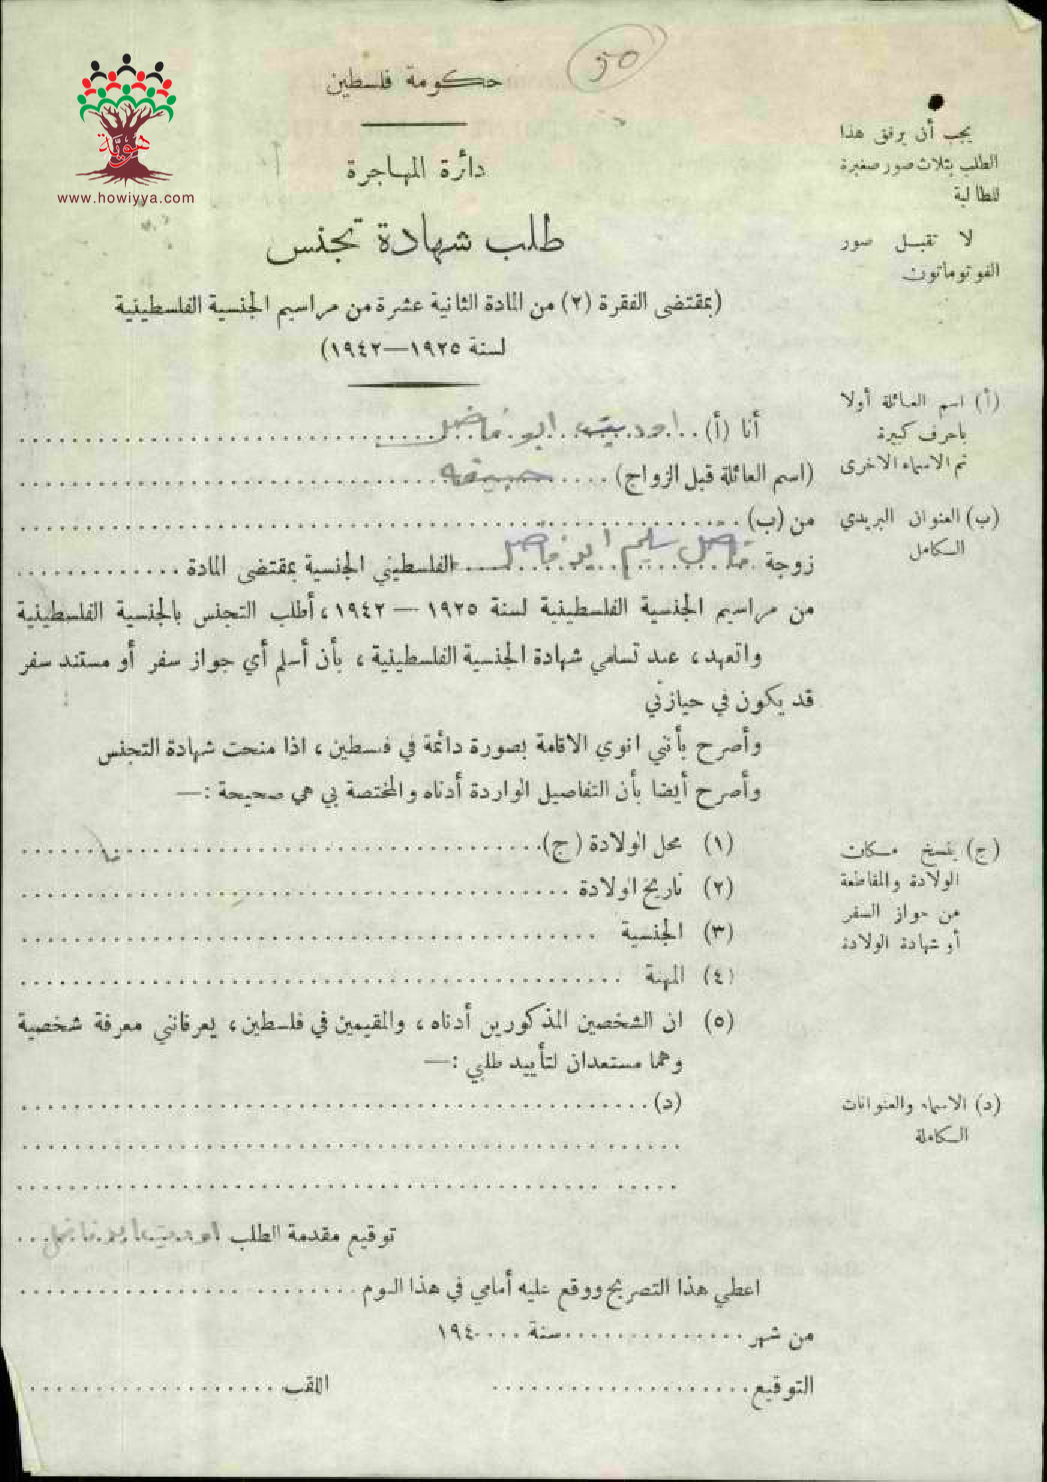 50
حكومة فلسطين
هوية
www.howiyya.com
دائرة المهاجرة
طلب شهادة تجنس
(بمقتضى الفقرة (٢) من المادة الثانية عشرة من مراسيم الجنسية الفلسطينية
لسنة ١٩٢٥—١٩٤٢)
يجب أن يرفق هذا
الطلب بثلاث صور صغيرة
للطالبة
لا تقبل صور
الفوتوماتون
أنا (أ) اوديت ابو فاضل
(اسم العائلة قبل الزواج)
من (ب)
زوجة فاضل سليم ابو فاضل الفلسطيني الجنسية بمقتضى المادة
من مراسيم الجنسية الفلسطينية لسنة ١٩٢٥ — ١٩٤٢، أطلب التجنس بالجنسية الفلسطينية
واتعهد، عند تسلمي شهادة الجنسية الفلسطينية، بأن أسلم أي جواز سفر أو مستند سفر
قد يكون في حيازتي
وأصرح بأنني انوي الاقامة بصورة دائمة في فلسطين، اذا منحت شهادة التجنس
وأصرح أيضا بأن التفاصيل الواردة أدناه والمختصة بي هي صحيحة :—
(أ) اسم العائلة أولا
باحرف كبيرة
ثم الاسماء الاخرى
(ب) العنوان البريدي
الكامل
(١) محل الولادة (ج)
(٢) تاريخ الولادة
(٣) الجنسية
(٤) المهنة
(٥) ان الشخصين المذكورين أدناه، والمقيمين في فلسطين، يعرفانني معرفة شخصية
وهما مستعدان لتأييد طلبي :—
(د)
(ج) ينسخ مكان
الولادة والمقاطعة
من جواز السفر
أو شهادة الولادة
(د) الاسماء والعنوانات
الكاملة
توقيع مقدمة الطلب اوديت ابو فاضل
اعطي هذا التصريح ووقع عليه أمامي في هذا اليوم
من شهر سنة ١٩٤٠
التوقيع اللقب